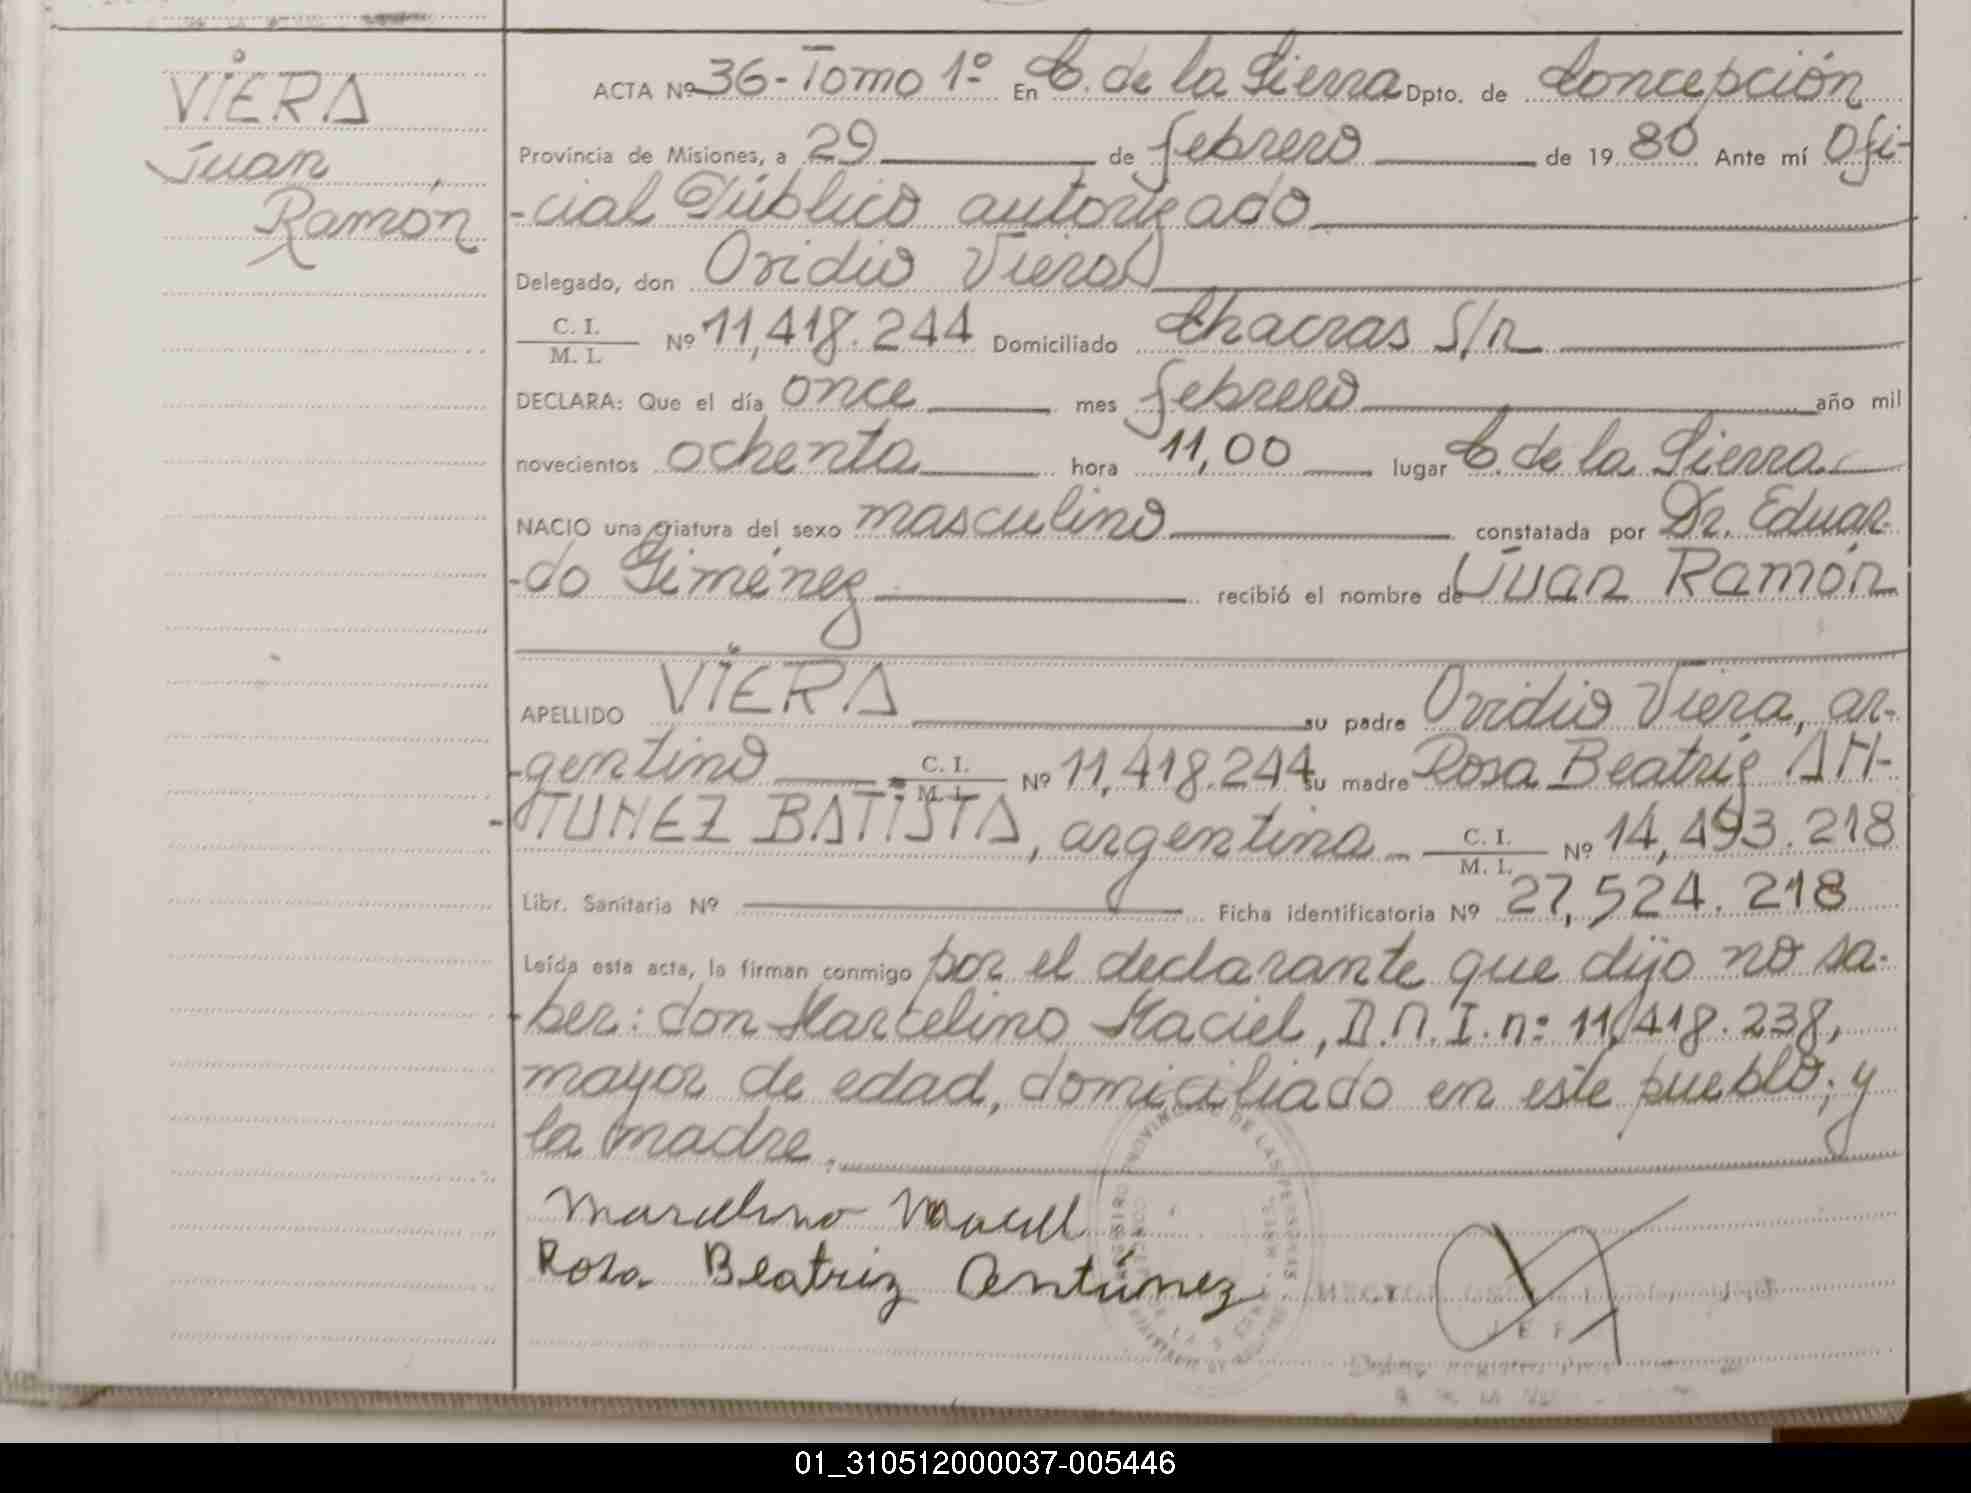 VIERA
Juan
Ramón
ACTA Nº 36-Tomo 1º En C. de la Sierra Dpto. de Concepción
Provincia de Misiones, a 29 de febrero de 1980 Ante mí Ofi-
-cial Público autorizado
Delegado, don Ovidio Viera
C. I.
M. I. Nº 11,418.244 Domiciliado Chacras S/n
DECLARA: Que el día once mes febrero año mil
novecientos ochenta hora 11,00 lugar C. de la Sierra
NACIO una criatura del sexo masculino constatada por Dr. Eduar-
-do Giménez recibió el nombre de Juan Ramón
APELLIDO VIERA su padre Ovidio Viera, ar-
-gentino C. I.
M. I. Nº 11,418.244 su madre Rosa Beatriz AN-
-TUNEZ BATISTA, argentina C. I.
M. I. Nº 14,493.218
Libr. Sanitaria Nº Ficha identificatoria Nº 27,524.218
Leída esta acta, la firman conmigo por el declarante que dijo no sa-
-ber: don Marcelino Maciel, D.N.I.n: 11,418.238,
mayor de edad, domiciliado en este pueblo; y
la madre.
Marcelino Maciel
Rosa Beatriz Antúnez
JEF
01_310512000037-005446